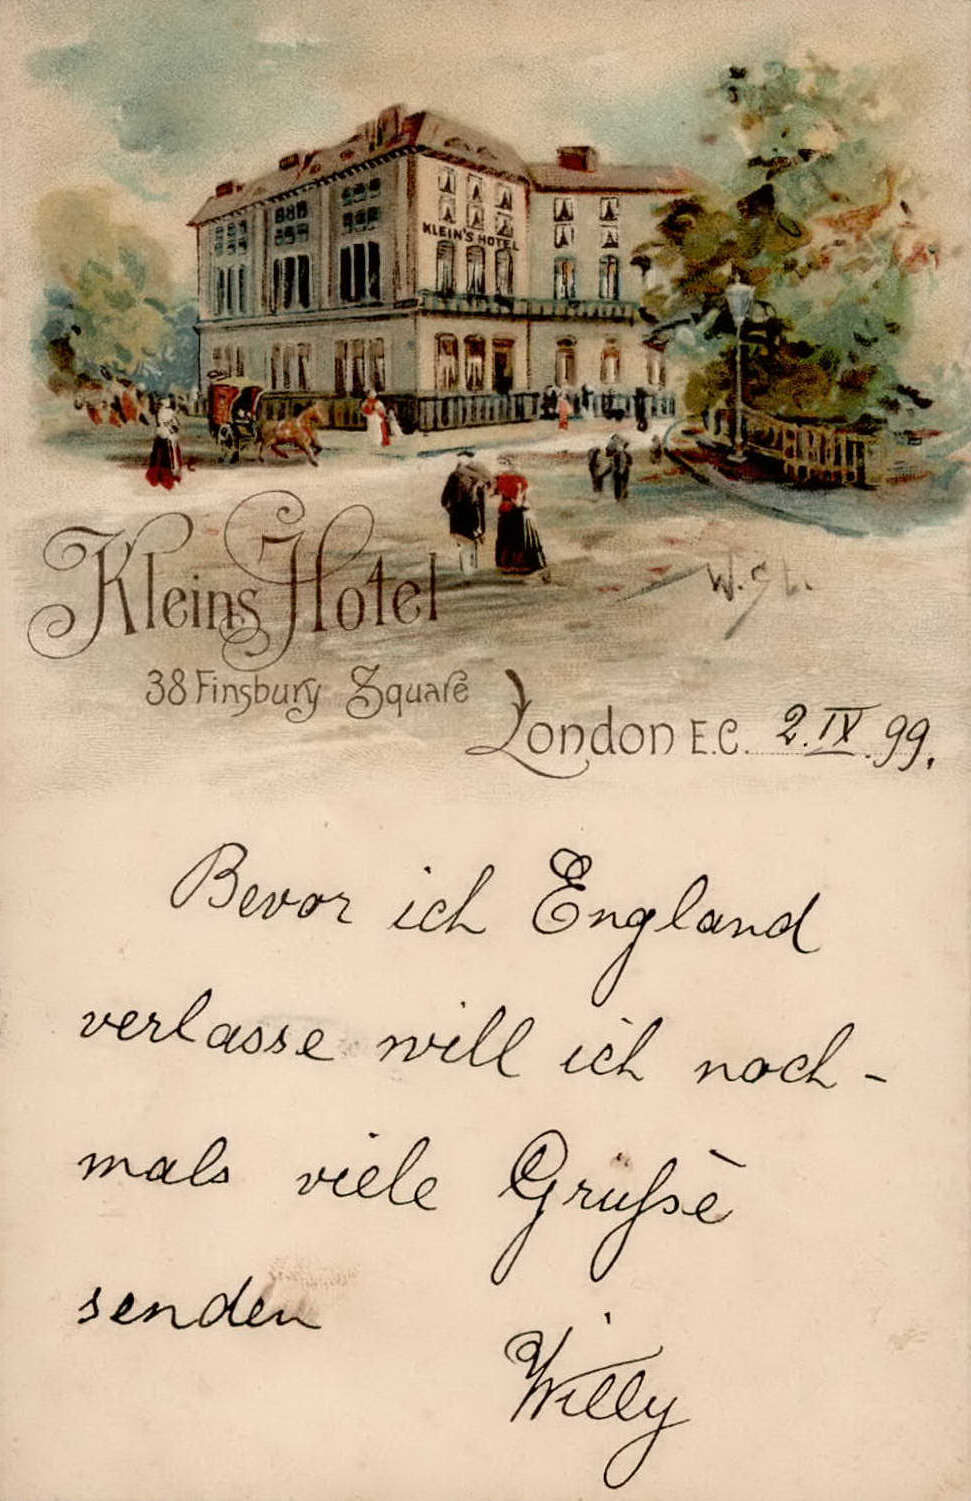 KLEIN'S HOTEL
Kleins Hotel
38 Finsbury Square
London E.C. 2.IX.99.
Bevor ich England
verlasse will ich noch-
mals viele Grüße
senden
Willy